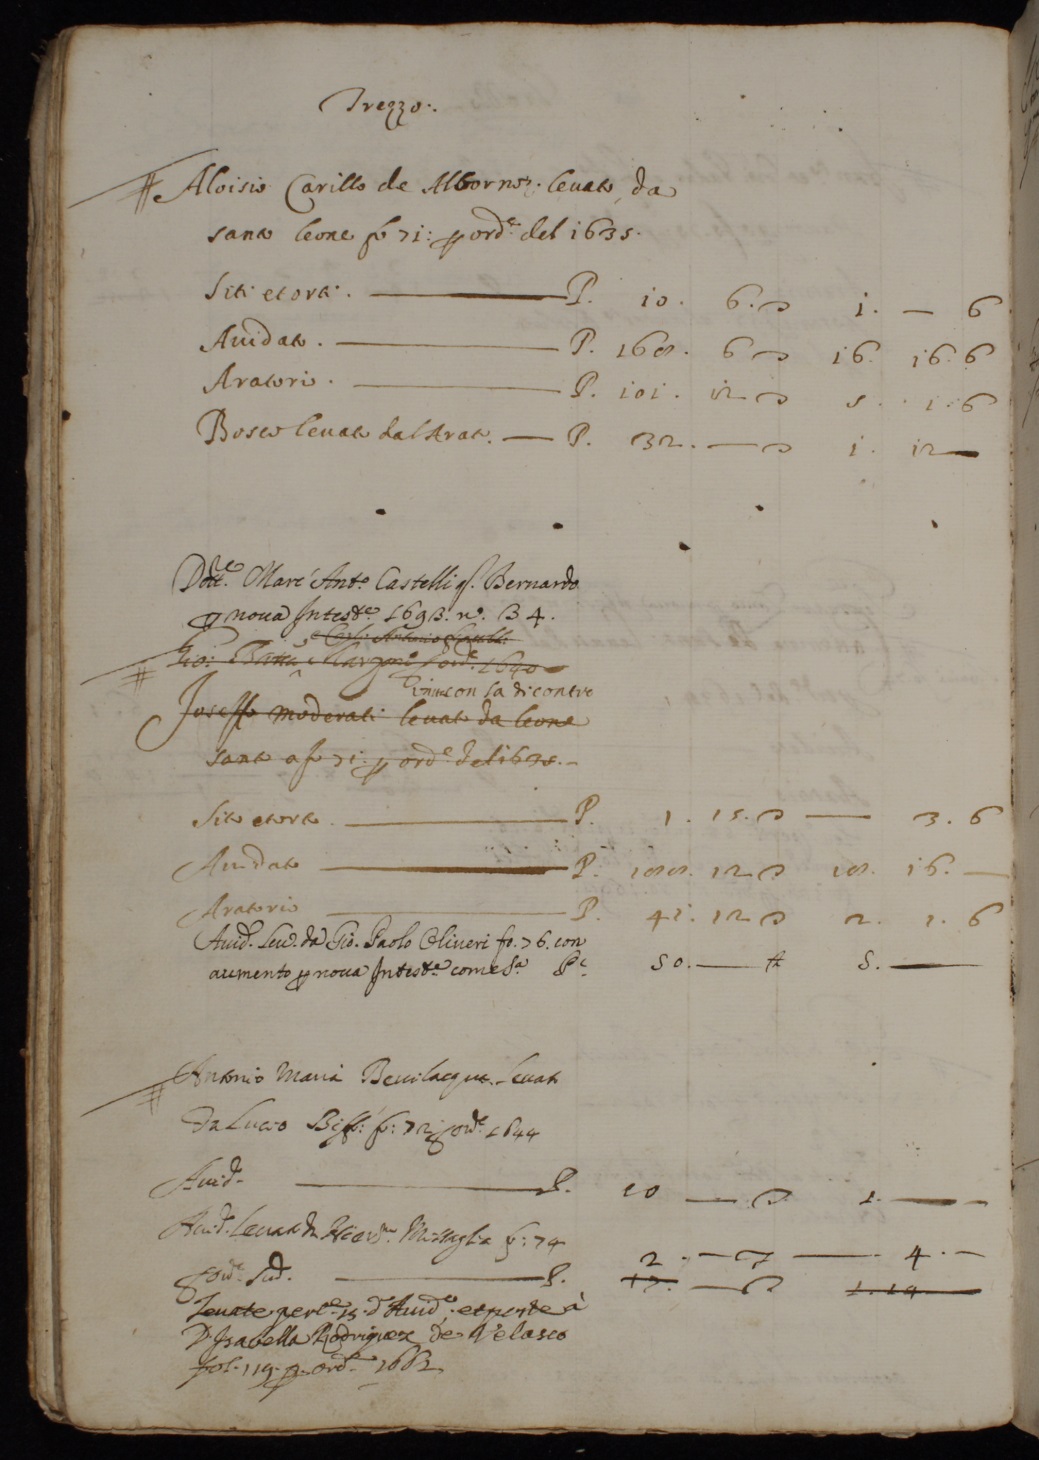 Trezzo.
Aloisio Carillo de Albornoz. levato da
santo leone fo 71: p ord.e del 1635.
Siti et orti. — P. 10. 6. 1. — 6
Auidato. — P. 168. 6 16. 16. 6
Aratorio. — P. 101. 12 5. 1. 6
Bosco levato dal Arat. — P. 32. — 1. 12 —
Dott.e Marc' Ant.o Castelli q. Bernardo
p noua Intest.e 1693. n.o 34.
Carlo Antonio
Gio: Batta ord.e 1640
con la di contro
Joseffo moderati levato da leone
santo a fo 71. p ord.e del 1635. —
Sito et orto. — P. 1. 15. — 3. 6
Auidato — P. 188. 12 18. 16. —
Aratorio — P. 41. 12 2. 1. 6
Auid.o Leu.o da Gio. Paolo Oliueri fo. 76. con
aumento p noua Intest.e come s.a P.e 50. — 5. —
Antonio Maria Beuilacqua levato
Da Lucio Biff: fo: 72 p ord.e 1644
Auid.o — P. 10 — 1. —
Auid.o levato da Missaglia fo: 74
p ord.e sud. — P. 2. — — 4. —
17. — 1. 14
Leuate pert.e 15 d'Auid.o et poste à
D. Isabella Rodriguez de Velasco
fol. 119. p. ord.e 1662